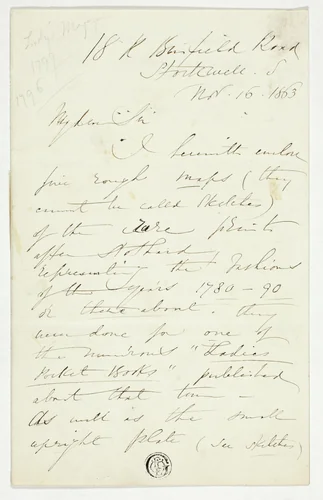 Lady's Mag
179
1796
18 K Burfield Road
Stockwell. S
Nov. 16. 1863
My dear Sir
I herewith enclose
five rough maps (they
cannot be called Sketches)
of the rare prints
after Stothard
representing the Fashions
of the years 1780-90
or there about. they
were done for one of
the numerous "Ladies
Pocket Books" published
about that time -
As well as the small
upright plate (see sketches)